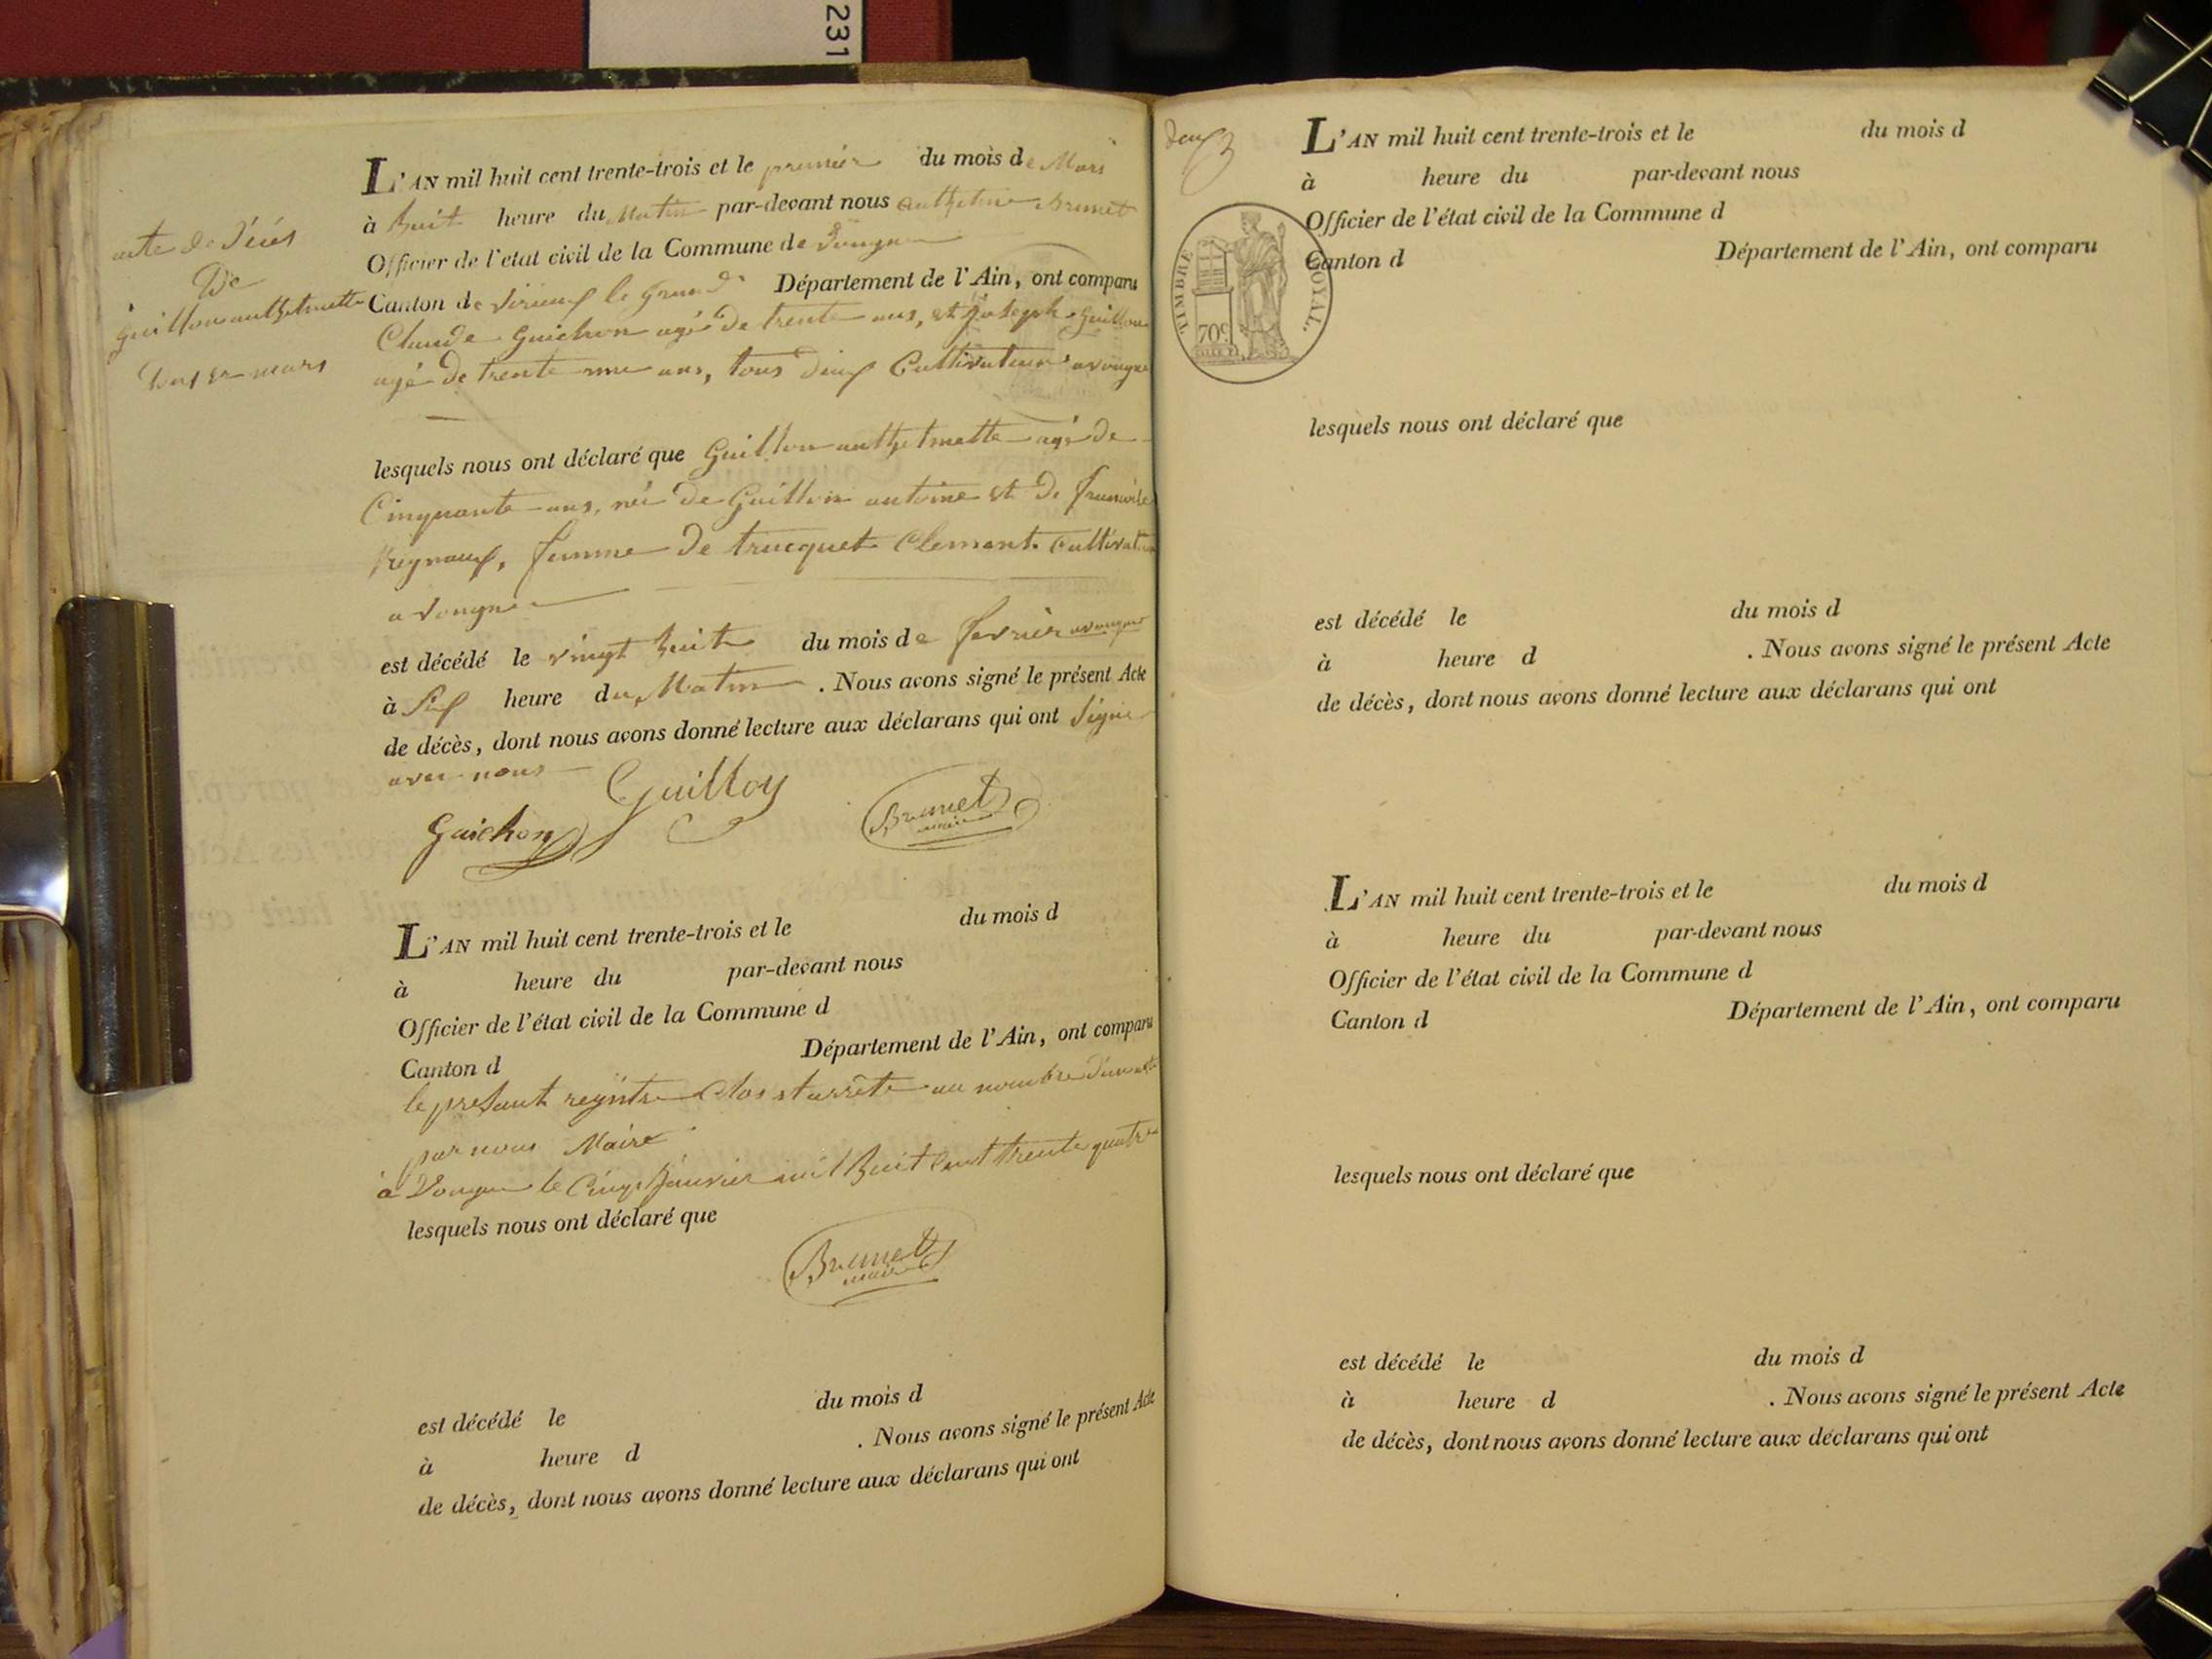 231
L'AN mil huit cent trente-trois et le premier du mois de Mars
à huit heure du Matin par-devant nous anthelme Brunet
Officier de l'état civil de la Commune de Vongne
Canton de Virieux le grand Département de l'Ain, ont comparu
Claude Guichon agé de trente ans, et joseph Guilloy
agé de trente ans, tous deux Cultivateurs a vongne
acte de décès
De
guillon anthelmette
Du 1er mars
lesquels nous ont déclaré que Guillon anthelmette agé de
Cinquante ans, née de Guillon antoine et de
femme de trucquet Clement Cultivateur
a vongne
est décédé le vingt huit du mois de fevrier a vongne
à six heure du Matin . Nous avons signé le présent Acte
de décès, dont nous avons donné lecture aux déclarans qui ont signé
avec nous
Guilloy
Guichon
Brunet
maire
L'AN mil huit cent trente-trois et le du mois d
à heure du par-devant nous
Officier de l'état civil de la Commune d
Canton d Département de l'Ain, ont comparu
le present registre clos et arrêté au nombre d'un acte
par nous Maire
à Vongne le Cinq Janvier mil huit cent trente quatre
lesquels nous ont déclaré que
Brunet
maire
est décédé le du mois d
à heure d . Nous avons signé le présent Acte
de décès, dont nous avons donné lecture aux déclarans qui ont
deux
TIMBRE ROYAL.
70c
L'AN mil huit cent trente-trois et le du mois d
à heure du par-devant nous
Officier de l'état civil de la Commune d
Canton d Département de l'Ain, ont comparu
lesquels nous ont déclaré que
est décédé le du mois d
à heure d . Nous avons signé le présent Acte
de décès, dont nous avons donné lecture aux déclarans qui ont
L'AN mil huit cent trente-trois et le du mois d
à heure du par-devant nous
Officier de l'état civil de la Commune d
Canton d Département de l'Ain, ont comparu
lesquels nous ont déclaré que
est décédé le du mois d
à heure d . Nous avons signé le présent Acte
de décès, dont nous avons donné lecture aux déclarans qui ont